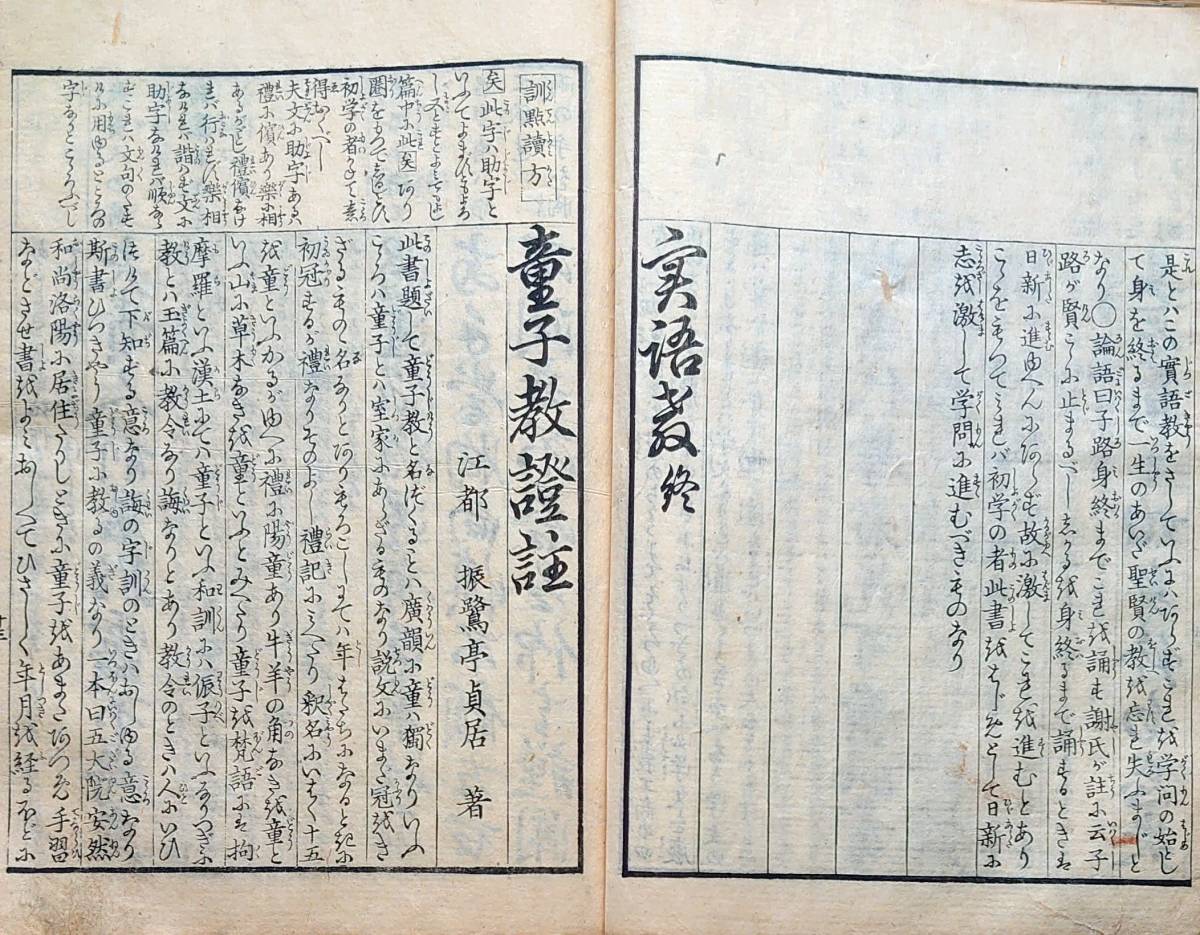 是とハこの實語教をさしていふにハあらずこれを学问の始とし
て身を終るまで一生のあいだ聖賢の教を忘れ失ふまじと
なり〇論語曰子路身終までこれを誦す謝氏が註に云子
路が賢こゝに止まるべし志かるを身終るまで誦するときは
日新に進ゆへんにあらず故に激してこれを進むとあり
こゝをもつてみれバ初学の者此書をはじめとして日新に
志を激して学問に進むべきものなり
実語教終
訓點讀方
矣此字ハ助字と
いふてよまひともよろ
し又とよみてもよし
篇中に此矣あり
圏をもつて
初学の者
得おくべし
夫文に助字あるハ
禮に儐あり樂に相
あるがごとし禮儐なけ
れバ行ハれず樂相
なけれバ諧ハず文に
助字なけれバ順ならず
これハ文句のたすけ
に用ゆるところの
字なりとこゝろふべし
童子教證註
江都 振鷺亭貞居 著
此書題して童子教と名づくることハ廣韻に童ハ獨なりいふ
こゝろハ童子とハ室家にあらざるものなり説文にいまだ冠をき
ざるものゝ名なりとありもろこしにてハ年はたちになるとき
初冠するが禮なりそのよし 禮記にみへたり 釈名にいはく十五
を童といふかるがゆへに禮に陽童あり牛羊の角なきを童と
いふ山に草木なきを童といふとみへたり童子を梵語には拘
摩羅といふ漢土にてハ童子といふ和訓にハ侲子といふなりつぎに
教とハ玉篇に教令なり誨なりとあり教令のときハ人にいひ
つけて下知する意なり誨の字訓のときハおしゆる意なり
斯書ひつきやう童子に教るの義なり一本曰五大院安然
和尚洛陽に居住たりしときに童子をあまたあつめ手習
などさせ書をよみおしへてひさしく年月を経るほどに
十三